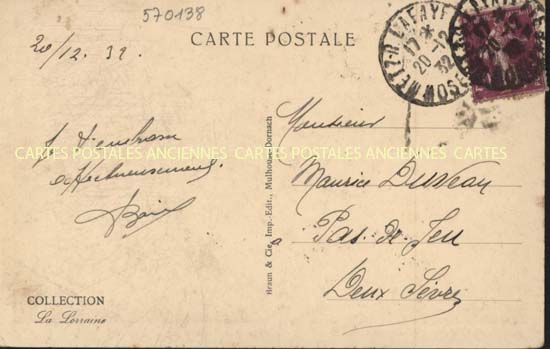 570138
20/12. 32.
CARTE POSTALE
METZ-R. LAFAYETTE
17 *
20-12
32
MOSELLE
Je t'embrasse
affectueusement.
CARTES POSTALES ANCIENNES CARTES POSTALES ANCIENNES CARTES
Monsieur
Maurice
Pas-de-Jeu
Deux Sèvres
Braun & Cie, Imp.-Edit., Mulhouse-Dornach
COLLECTION
La Lorraine